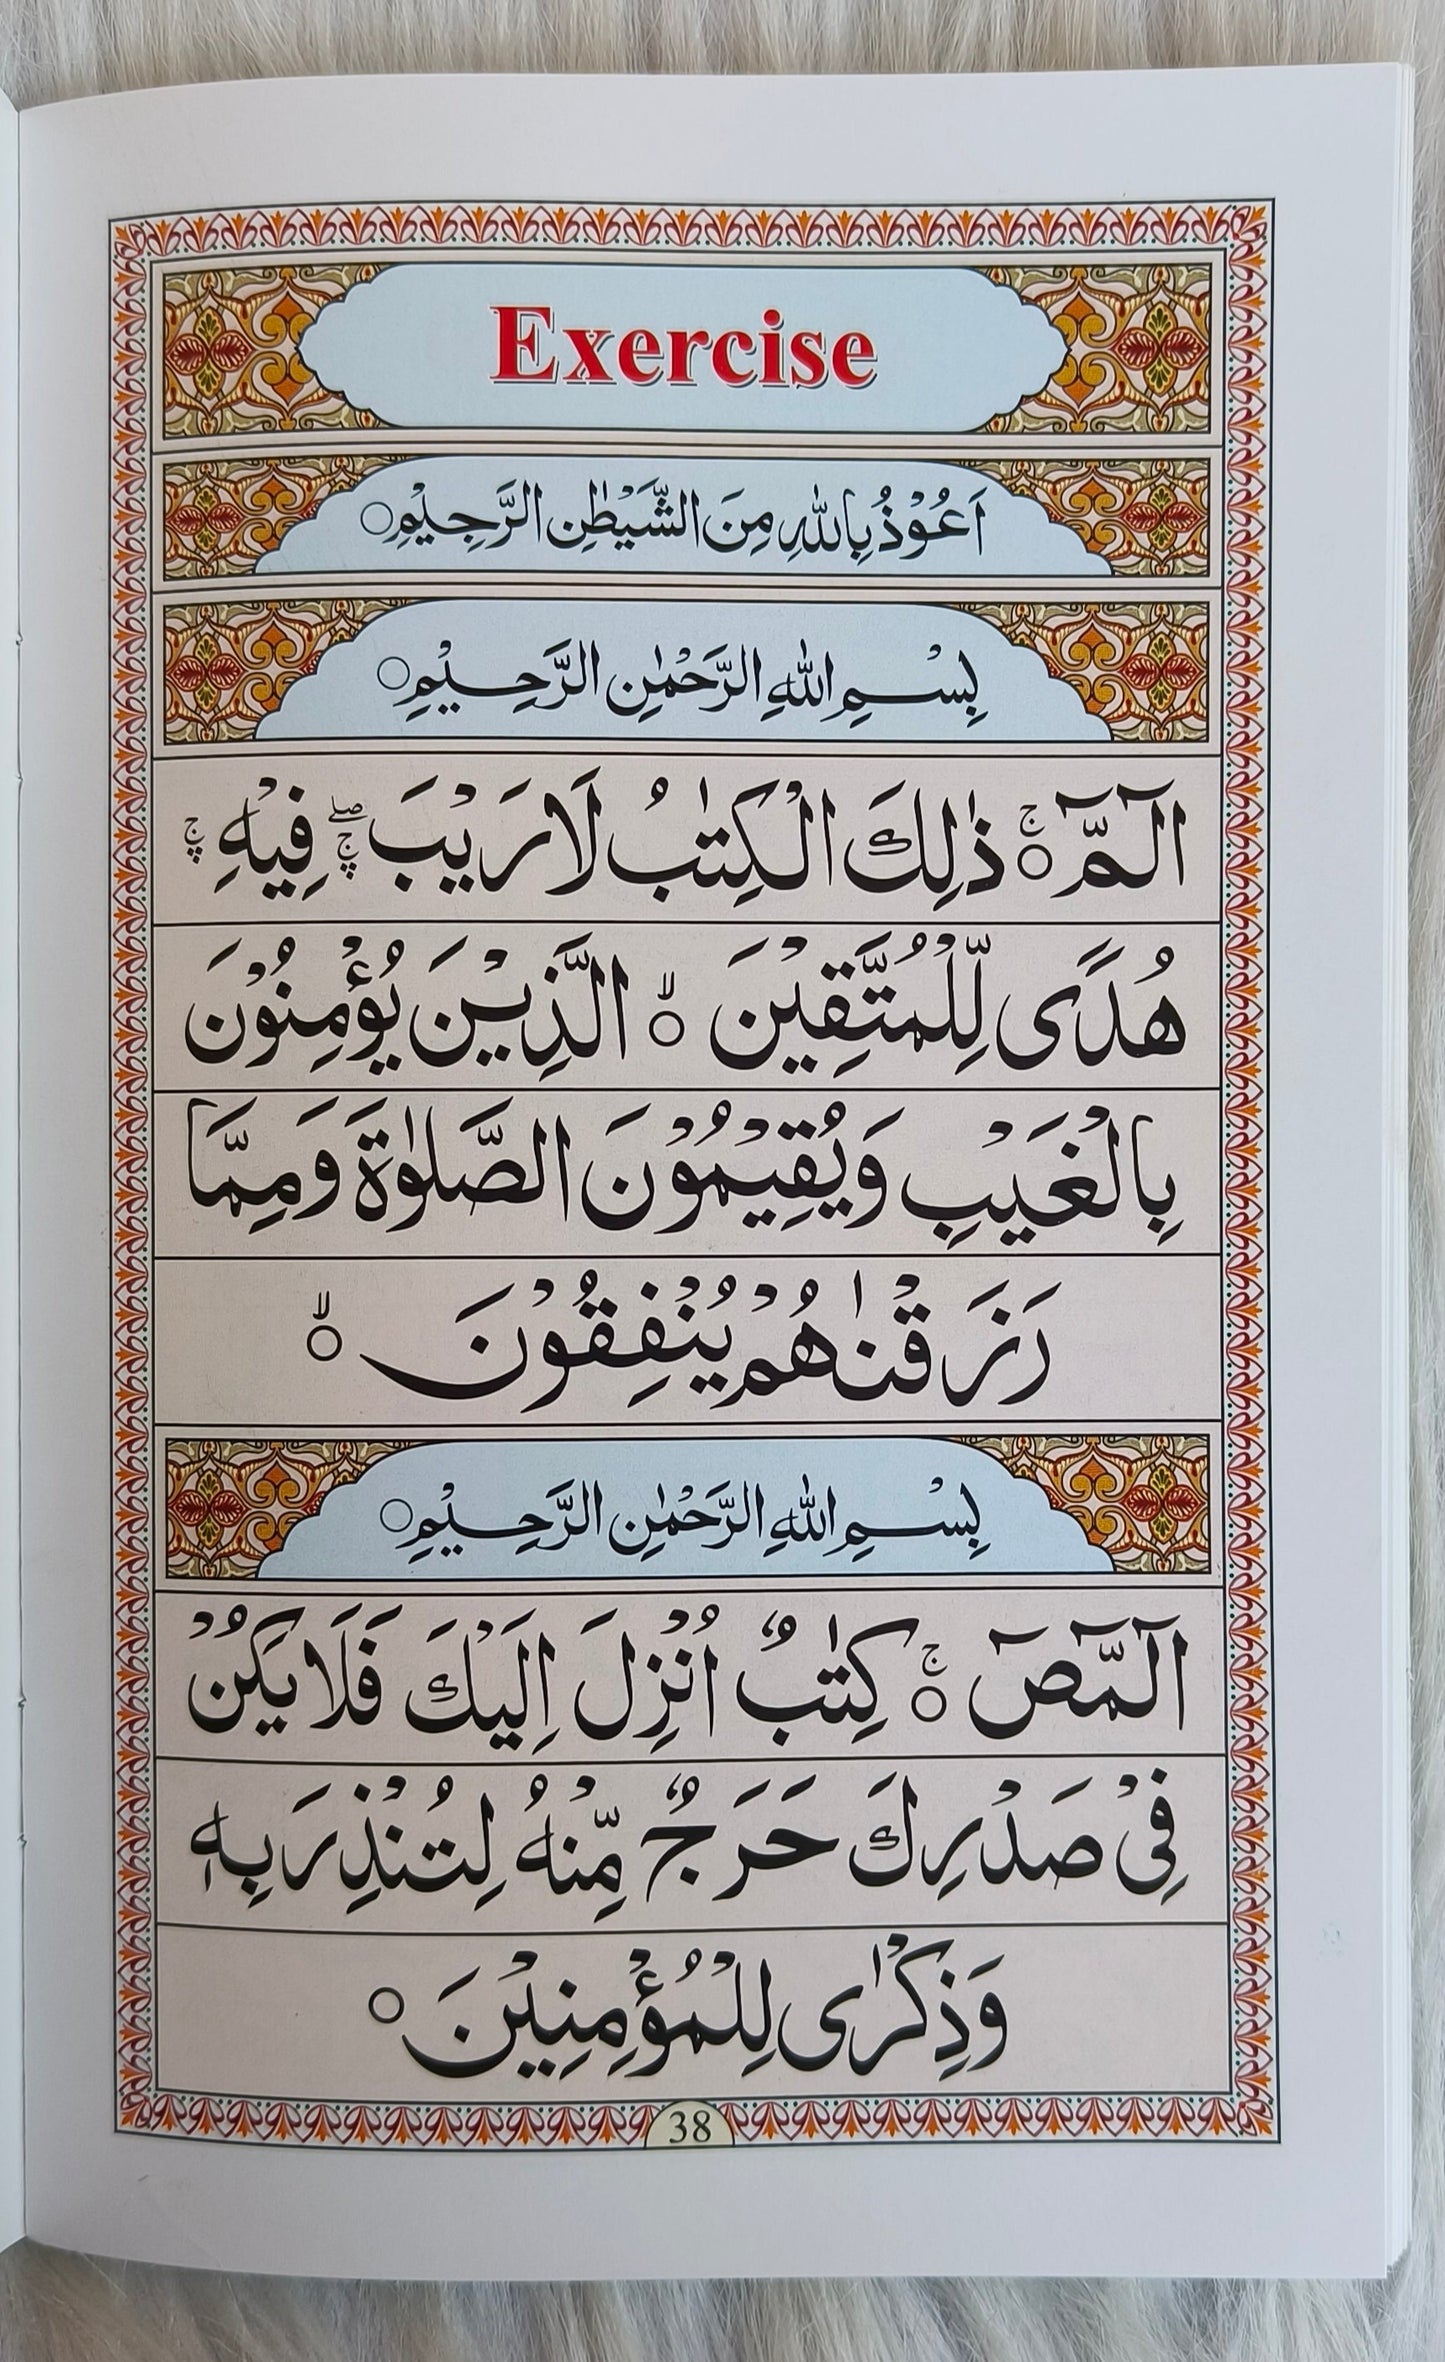 Exercise
اَعُوْذُ بِاللّٰهِ مِنَ الشَّيْطٰنِ الرَّجِيْمِ ○
بِسْمِ اللّٰهِ الرَّحْمٰنِ الرَّحِيْمِ ○
الٓمّٓ ○ۚ ذٰلِكَ الْكِتٰبُ لَا رَيْبَ ۛۖۚ فِيْهِ ۛۚ
هُدًى لِّلْمُتَّقِيْنَ ○ۙ الَّذِيْنَ يُؤْمِنُوْنَ
بِالْغَيْبِ وَيُقِيْمُوْنَ الصَّلٰوةَ وَمِمَّا
رَزَقْنٰهُمْ يُنْفِقُوْنَ ○ۙ
بِسْمِ اللّٰهِ الرَّحْمٰنِ الرَّحِيْمِ ○
الٓمّٓصٓ ○ۚ كِتٰبٌ اُنْزِلَ اِلَيْكَ فَلَا يَكُنْ
فِيْ صَدْرِكَ حَرَجٌ مِّنْهُ لِتُنْذِرَ بِهٖ
وَذِكْرٰى لِلْمُؤْمِنِيْنَ ○
38